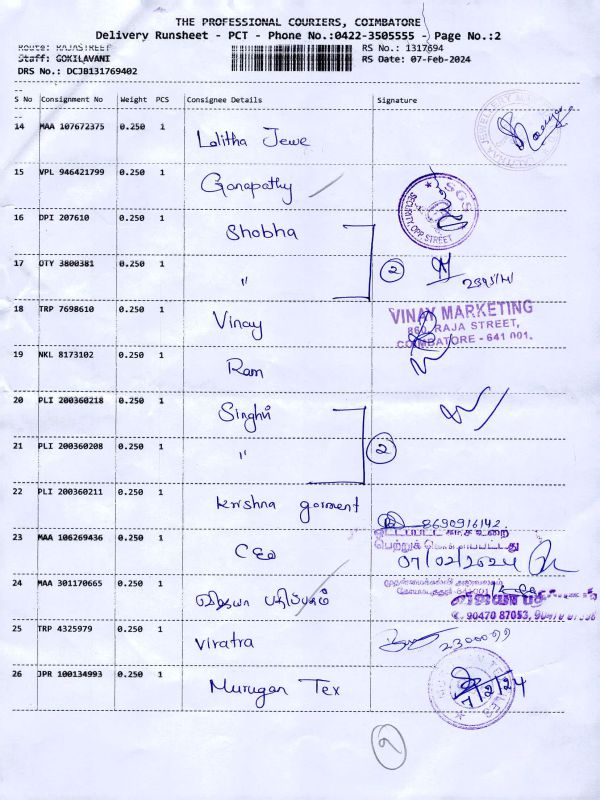 THE PROFESSIONAL COURIERS, COIMBATORE
Delivery Runsheet - PCT - Phone No.:0422-3505555 - Page No.:2
Route: RAJASTREET
RS No.: 1317694
Staff: GOKILAVANI
RS Date: 07-Feb-2024
DRS No.: DCJB131769402
S No Consignment No Weight PCS Consignee Details Signature
14 MAA 107672375 0.250 1 Lalitha Jewe
15 VPL 946421799 0.250 1 Ganapathy
SGS
SECURITY, OPP. STREET
16 DPI 207610 0.250 1 Shobha
17 OTY 3800381 0.250 1 " 2
18 TRP 7698610 0.250 1 Vinay
VINAY MARKETING
RAJA STREET,
COIMBATORE - 641 001.
19 NKL 8173102 0.250 1 Ram
20 PLI 200360218 0.250 1 Singhvi
21 PLI 200360208 0.250 1 " 2
22 PLI 200360211 0.250 1 Krishna garment
8690916142.
23 MAA 106269436 0.250 1 CEO
ஒட்டப்பட்ட உறை
பெற்றுக்
07/02/2024
24 MAA 301170665 0.250 1 விஜயா பதிப்பகம்
முதன்மைக்கல்வி அலுவலகம்
641001
விஜயா
90470 87053, 90470
25 TRP 4325979 0.250 1 Viratra
26 JPR 100134993 0.250 1 Murugan Tex
7/2/24
2